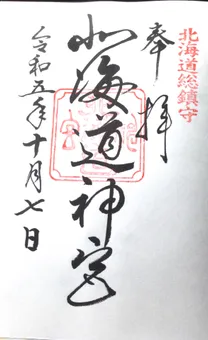 北海道総鎮守
奉拝
北海道神宮
令和五年十月七日